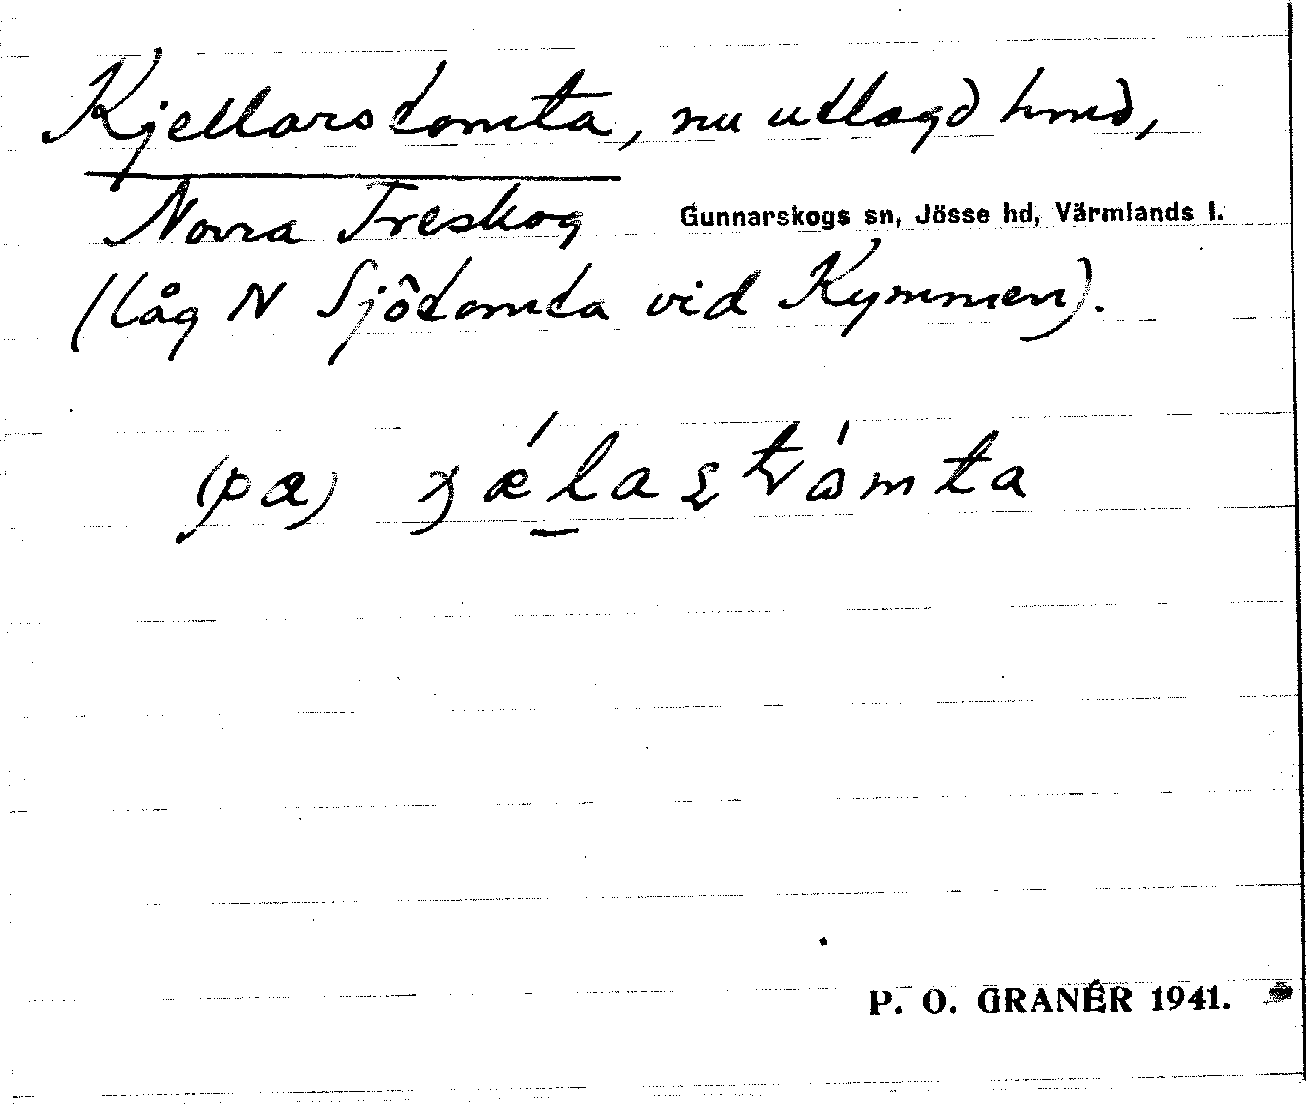 Kjellarstomta, nu utlagd hmd,
Norra Treskog Gunnarskogs sn, Jösse hd, Värmlands l.
(låg N Sjötomta vid Kymmen).
(pæ)
P. O. GRANÉR 1941.